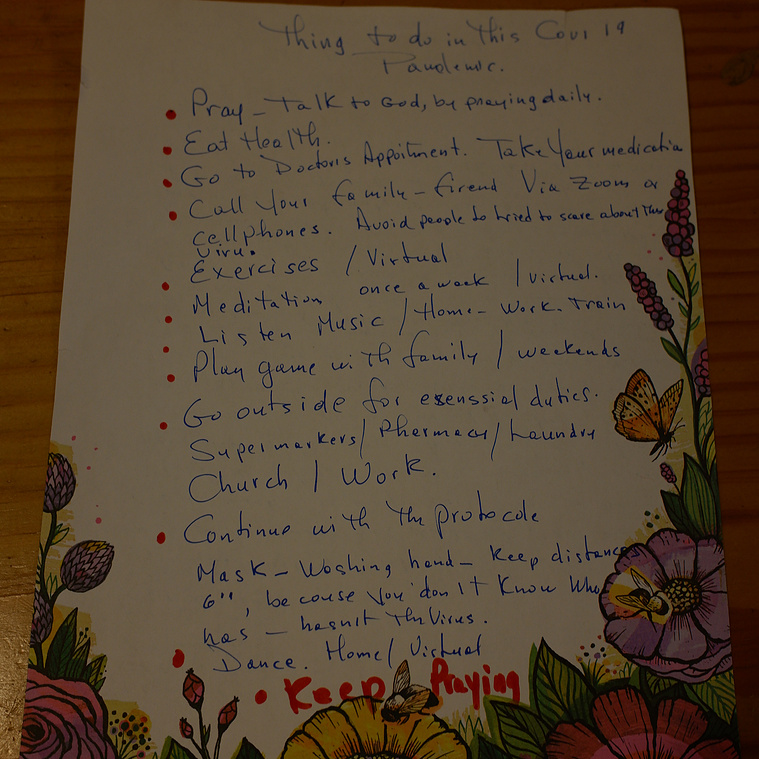 Thing to do in this Covi 19
Pandemic.
Pray - Talk to God, by praying daily.
Eat Health.
Go to Doctors Appoitment. Take Your medicatio
Call Your family - firend Via Zoom or
cellphones. Avoid people to tried to scare about The
Viru.
Exercises / Virtual
Meditation once a week / Virtual.
Listen Music / Home - Work. Train
Play game with family / weekends
Go outside for esenssial duties.
Supermarkers / Pharmacy / Laundry
Church / Work.
Continue with the protocole
Mask - Washing hand - keep distances
6", because you don't Know Who
has - hasnit The Virus.
Dance. Home / Virtual
Keep Praying